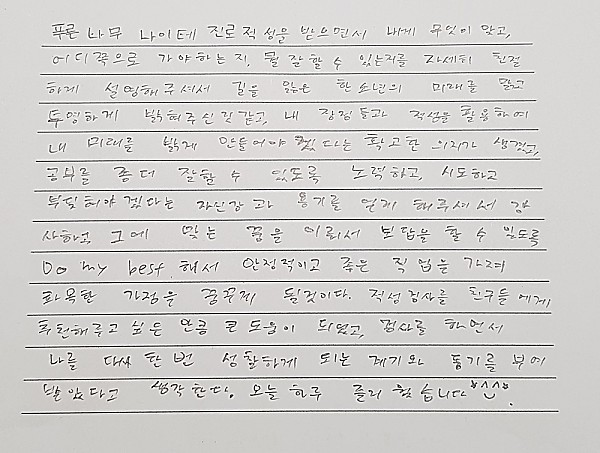 푸른 나무 나이테 진로적성을 받으면서 내게 무엇이 맞고,
어디쪽으로 가야하는지, 뭘 잘할 수 있는지를 자세히 친절
하게 설명해주셔서 길을 잃은 한소년의 미래를 맑고
투명하게 밝혀주신것같고, 내 장점들과 적성을 활용하여
내 미래를 밝게 만들어야 겠다는 확고한 의지가 생겼고,
공부를 좀더 잘할 수 있도록 노력하고, 시도하고
부딪혀야겠다는 자신감과 용기를 얻게 해주셔서 감
사하고, 그에 맞는 꿈을 이뤄서 보답을 할 수 있도록
Do my best 해서 안정적이고 좋은 직업을 가져
화목한 가정을 꿈꾸게 될것이다. 적성검사를 친구들에게
추천해주고 싶은 만큼 큰 도움이 되었고, 검사를 하면서
나를 다시 한번 성찰하게 되는 계기와 동기를 부여
받았다고 생각한다. 오늘 하루 즐거웠습니다 *^^*.